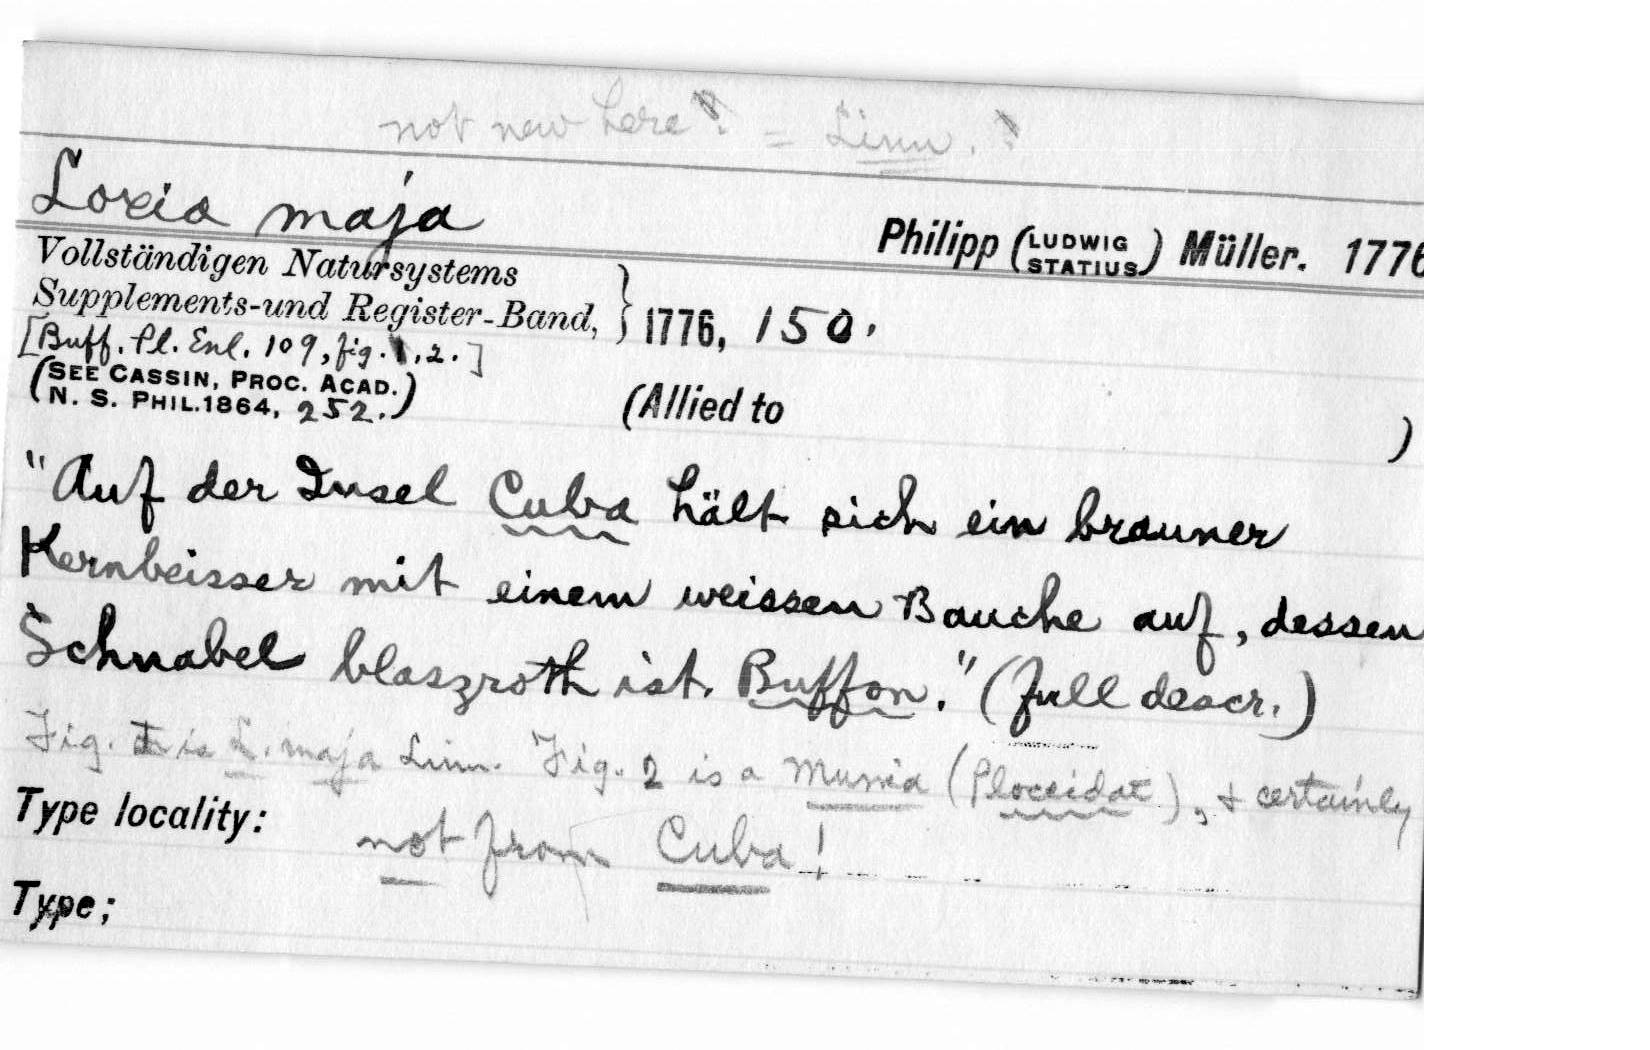 not new here? = Linn. ?
Loxia maja
Philipp (LUDWIG STATIUS) Müller. 1776
Vollständigen Natursystems
Supplements-und Register-Band, } 1776, 150.
[Buff. Pl. Enl. 109, fig. 1, 2.]
(SEE CASSIN, PROC. ACAD.
N. S. PHIL. 1864, 252.)
(Allied to )
"Auf der Insel Cuba hält sich ein brauner
Kernbeisser mit einem weissen Bauche auf, dessen
Schnabel blaszroth ist. Buffon." (full descr.)
Fig. 1 is L. maja Linn. Fig. 2 is a Munia (Ploceidae), & certainly
Type locality: not from Cuba!
Type;